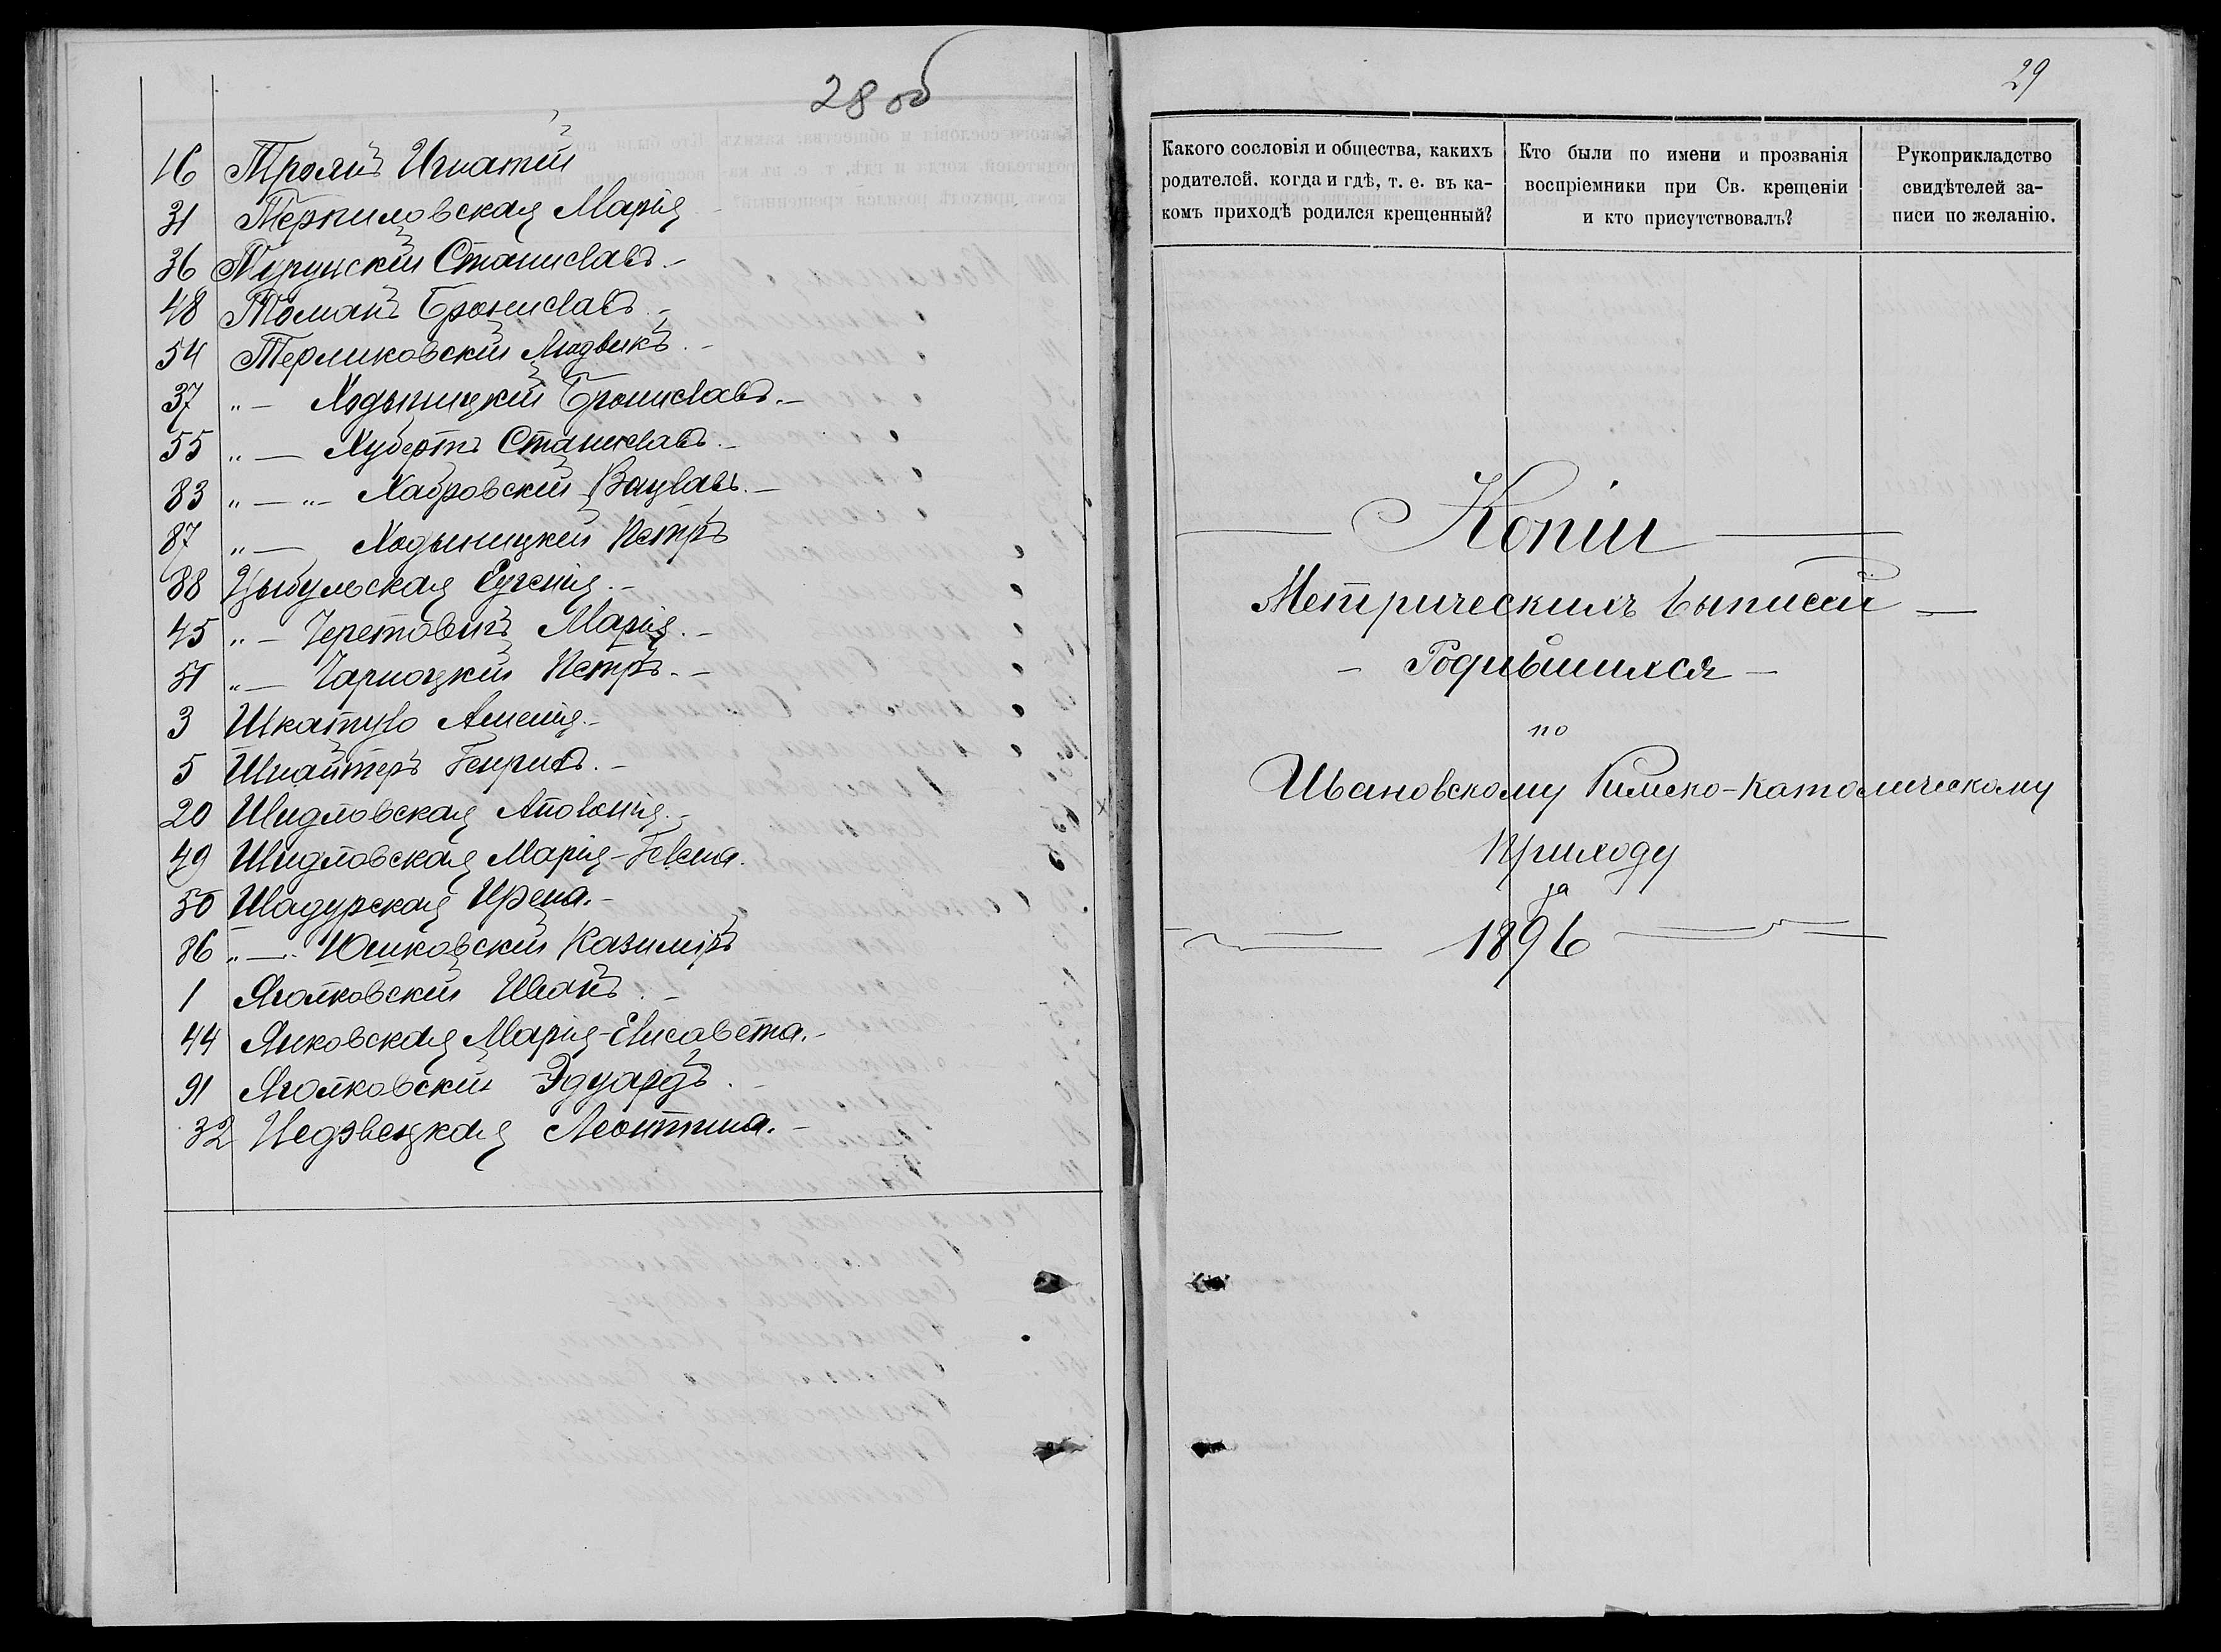 28 об
16 Тролнъ Игнатій
31 Терпиловская Марія
36 Турунскій Станиславъ. –
48 Томанъ Брониславъ. –
54 Терликовскій Людвикъ. –
37 „ – Ходыницкій Брониславъ. –
55 „ — Хубертъ Станиславъ. –
83 „ — „ – Хабровскій Вацлавъ. –
87 „ — Ходыницкій Петръ
88 Цыбульская Евгенія. –
45 „ – Черетовичъ Марія. –
51 „ — Чарноцкій Петръ. –
3 Шкатуло Амелія. –
5 Шнайтеръ Генрихъ. –
20 Шидловская Аполонія. –
49 Шидловская Марія-Гелена.
50 Шадурская Ирена. –
86 „ — Юшковскій Казиміръ
1 Яголковскій Иванъ. –
44 Янковская Марія-Елисавета. –
91 Яголковскій Эдуардъ. –
32 Недзвецкая Леонтина. –
29
Какого сословія и общества, какихъ родителей. когда и гдѣ, т. е. въ ка-комъ приходѣ родился крещенный?
Кто были по имени и прозванія воспріемники при Св. крещеніи и кто присутствовалъ?
Рукоприкладство свидѣтелей за-писи по желанію.
— Копіи —
Метрическихъ выписей —
– Родившихся –
по
Ивановскому Римско-Католическому
Приходу
за
1896